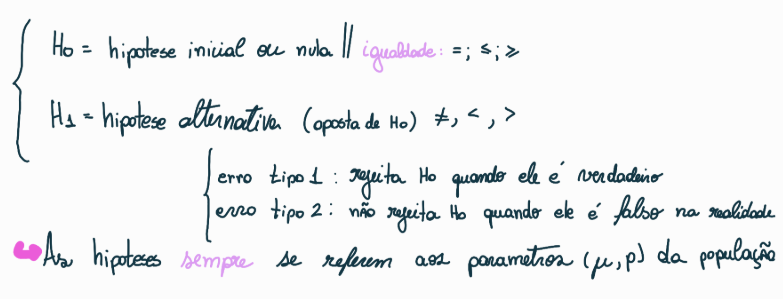 Ho = hipotese inicial ou nula || igualdade: =; ≤; ≥
H1 = hipotese alternativa (oposta de Ho) ≠, <, >
erro tipo 1: rejeita Ho quando ele é verdadeiro
erro tipo 2: não rejeita Ho quando ele é falso na realidade
As hipoteses sempre se referem aos parametros (μ, p) da população